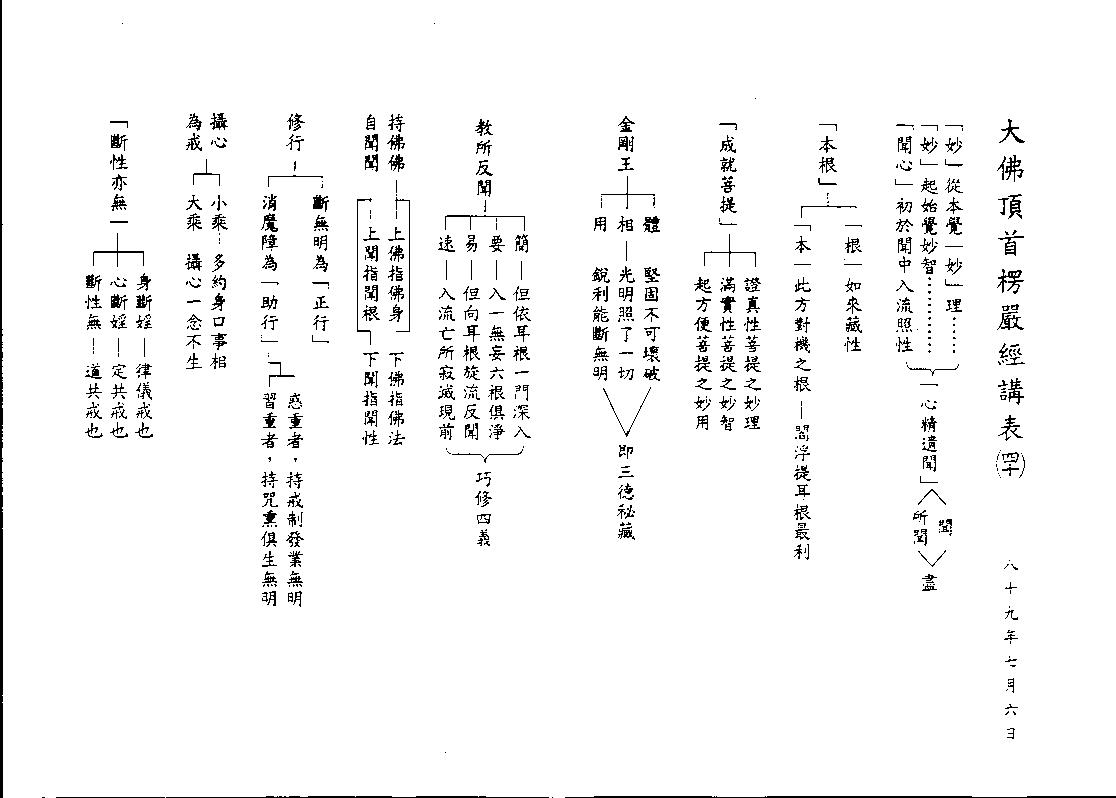 大佛頂首楞嚴經講表(四十)
八十九年七月六日
「妙」從本覺「妙」理……
「妙」起始覺妙智………
「聞心」初於聞中入流照性
「心精遺聞」
聞
所聞
盡
「本根」
「根」如來藏性
「本」此方對機之根—閻浮提耳根最利
「成就菩提」
證真性菩提之妙理
滿實性菩提之妙智
起方便菩提之妙用
金剛王
體 堅固不可壞破
相—光明照了一切
用 銳利能斷無明
即三德祕藏
教所反聞
簡—但依耳根一門深入
要—入一無妄六根俱淨
易—但向耳根旋流反聞
速—入流亡所寂滅現前
巧修四義
持佛佛
自聞聞
上佛指佛身 下佛指佛法
上聞指聞根 下聞指聞性
修行
斷無明為「正行」
消魔障為「助行」
惑重者,持戒制發業無明
習重者,持咒熏俱生無明
攝心
為戒
小乘…多約身口事相
大乘 攝心一念不生
「斷性亦無」
身斷婬—律儀戒也
心斷婬—定共戒也
斷性無—道共戒也